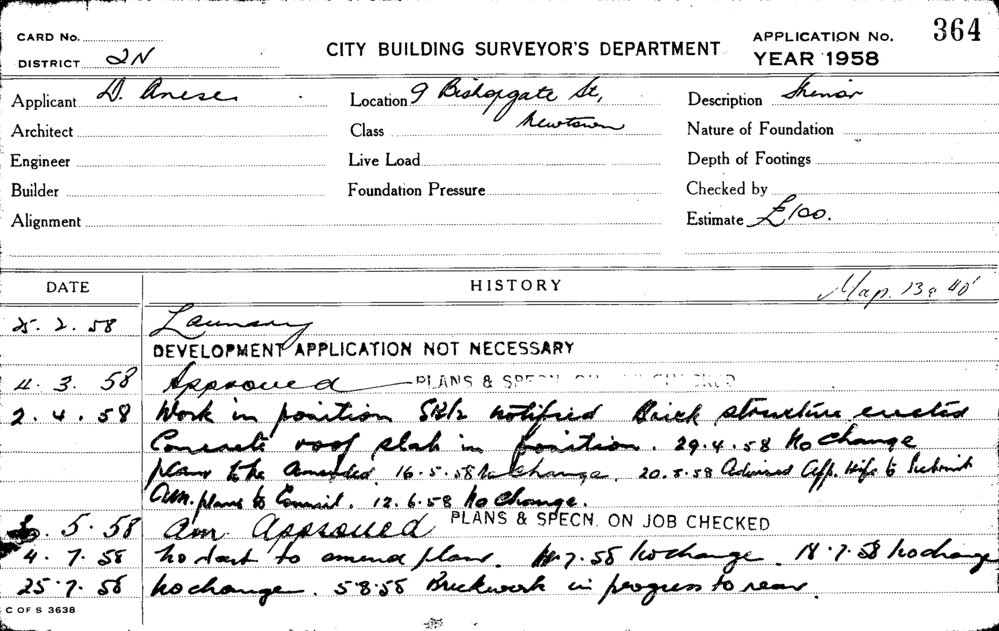 CARD No.
DISTRICT 2N
CITY BUILDING SURVEYOR'S DEPARTMENT
APPLICATION No. 364
YEAR 1958
Applicant D. Anese
Location 9 Bishopgate St,
Newtown
Description
Architect
Class
Nature of Foundation
Engineer
Live Load
Depth of Footings
Builder
Foundation Pressure
Checked by
Alignment
Estimate £100.
DATE
HISTORY
Map. 13 40'
25. 2. 58 Laundry
DEVELOPMENT APPLICATION NOT NECESSARY
4. 3. 58 Approved PLANS & SPECN ON CHECKED
2. 4. 58 Work in position notified Brick structure erected
Concrete roof slab in position. 29.4.58 No change
plans to be amended. 16.5.58 No change. 20.5.58 Advised App. Wife to Submit
Am. plans to Council. 12.6.58 No Change.
5. 58 Am Approved PLANS & SPECN. ON JOB CHECKED
4. 7. 58 No start to amend plans. 7.58 No change. 18.7.58 No change
25. 7. 58 No change. 5 8.58 Brickwork in progress to rear.
C OF S 3638